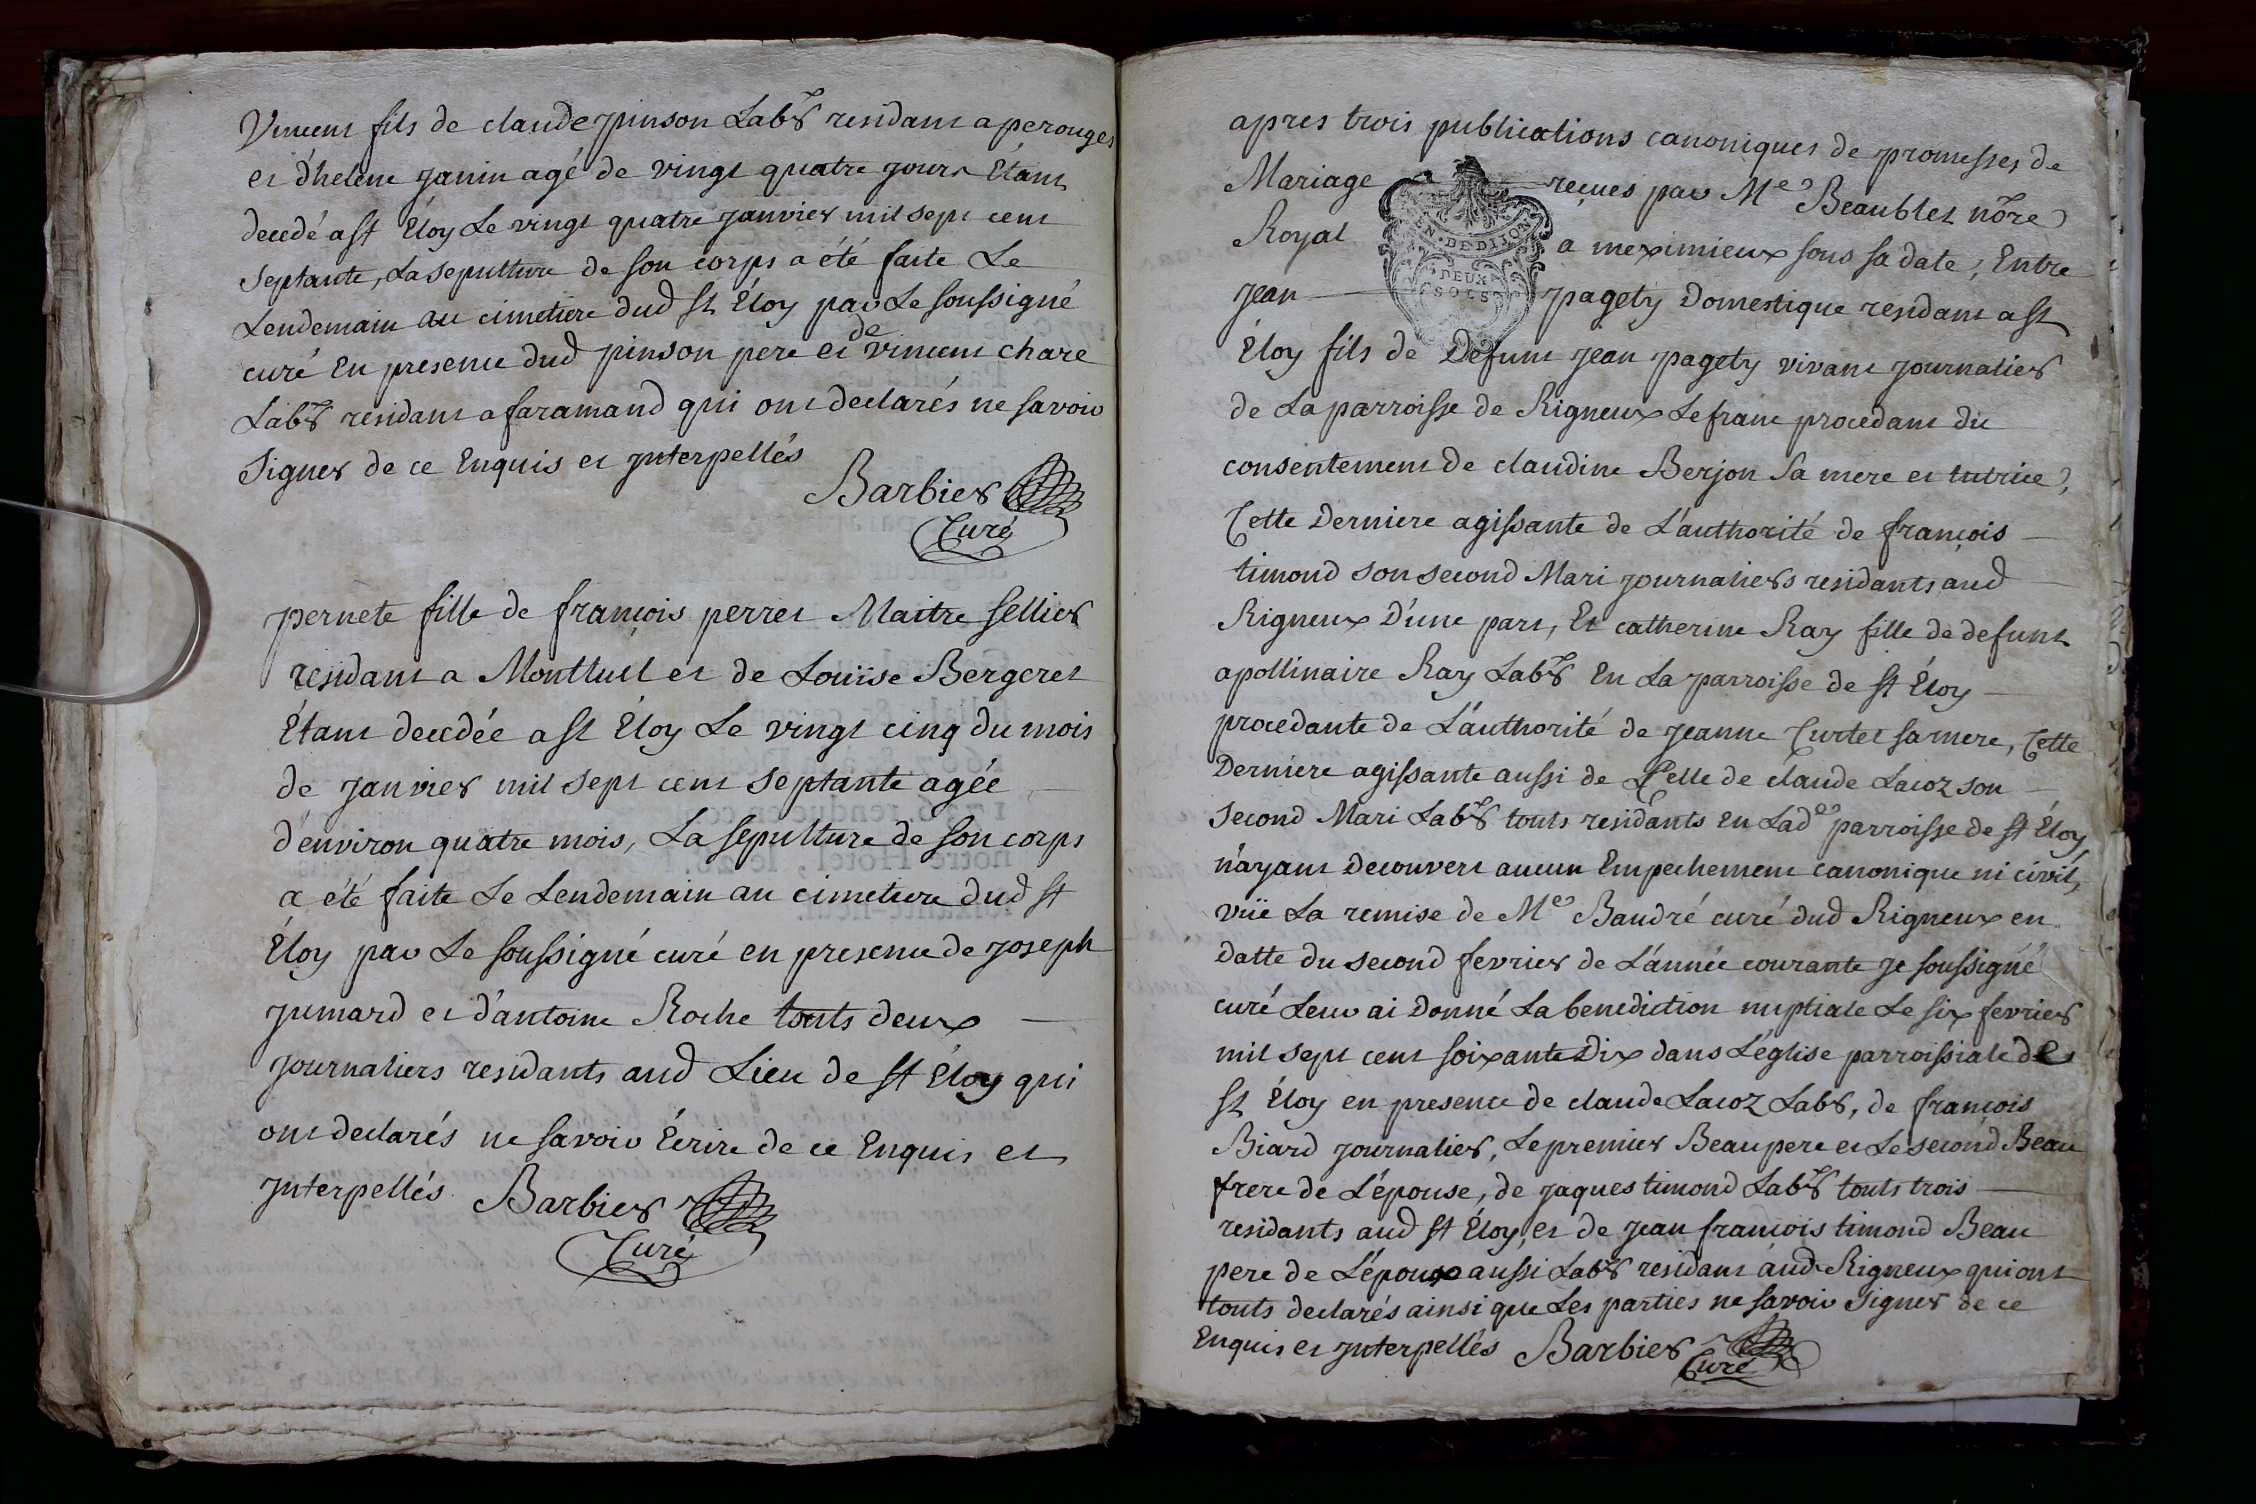 Vincent fils de claude pinson Labr residant a perouges
et d'helene janin agé de vingt quatre jours Étant
decedé a st Éloy Le vingt quatre janvier mil sept cent
septante, La sepulture de son corps a été faite Le
Lendemain au cimetiere dud st Éloy par Le soussigné
curé En presence dud pinson pere et de vincent chare
Labr residant a faramand qui ont declarés ne savoir
signer de ce Enquis et jnterpellés
Barbier
Curé
pernete fille de françois perret Maitre sellier
residant a Montluel et de Louïse Bergeret
Étant decedée a st Éloy Le vingt cinq du mois
de janvier mil sept cent septante agée
d'environ quatre mois, La sepulture de son corps
a été faite Le Lendemain au cimetiere dud st
Éloy par Le soussigné curé en presence de joseph
jumard et d'antoine Roche touts deux
journaliers residants aud Lieu de st Éloy qui
ont declarés ne savoir Écrire de ce Enquis et
jnterpellés Barbier
Curé
apres trois publications canoniques de promesses de
Mariage reçues par Me Beaublet nore
Royal a meximieux sous sa date, Entre
jean pagety Domestique residant a st
Éloy fils de Defunt jean pagety vivant journalier
de La parroisse de Rigneux Le franc procedant du
consentement de claudine Berjon sa mere et tutrice,
Cette Derniere agissante de L'authorité de françois
timond son second Mari journaliers residants aud
Rigneux D'une part, Et catherine Ray fille de defunt
apollinaire Ray Labr En La parroisse de st Éloy
procedante de L'authorité de jeanne Curtet sa mere, Cette
Derniere agissante aussi de Celle de claude Lacoz son
second Mari Labr touts residants En Lade parroisse de st Éloy
n'ayant Decouvert aucun Empechement canonique ni civil,
vüe La remise de Me Baudré curé dud Rigneux en
datte du second fevrier de L'année courante je soussigné
curé Leur ai Donné La benediction nuptiale Le six fevrier
mil sept cent soixante Dix dans L'église parroissiale de
st Éloy en presence de claude Lacoz Labr, de françois
Biard journalier, Le premier Beaupere et Le second Beau
frere de L'épouse, de jaques timond Labr touts trois
residants aud st Éloy, et de jean françois timond Beau
pere de L'époux aussi Labr residant aud Rigneux qui ont
touts declarés ainsi que Les parties ne savoir signer de ce
Enquis et jnterpellés Barbier
Curé
GEN. DE DIJON
DEUX
SOLS